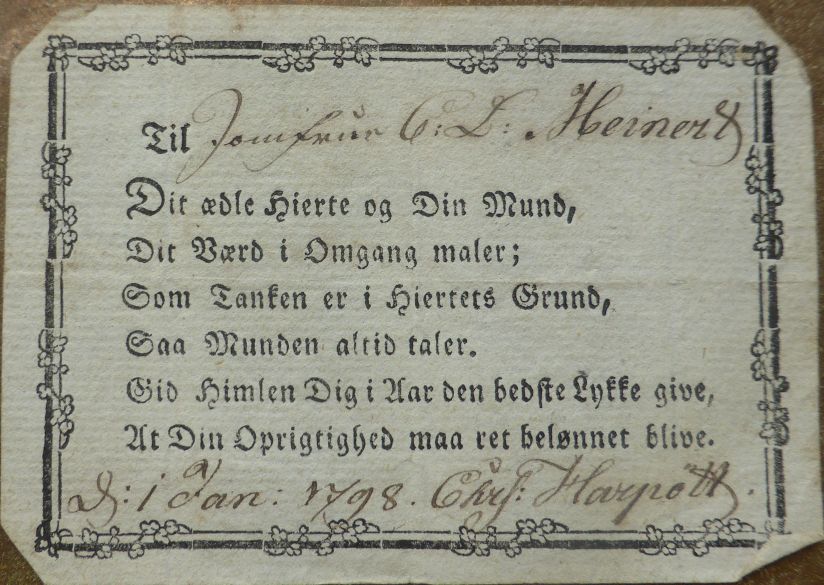 Til Jomfrue C: D: Meinert
Dit ædle Hierte og Din Mund,
Dit Værd i Omgang maler;
Som Tanken er i Hiertets Grund,
Saa Munden altid taler.
Gid Himlen Dig i Aar den bedste Lykke give,
At Din Oprigtighed maa ret belønnet blive.
D: 1 Jan: 1798. Chrs: Harpøtt.